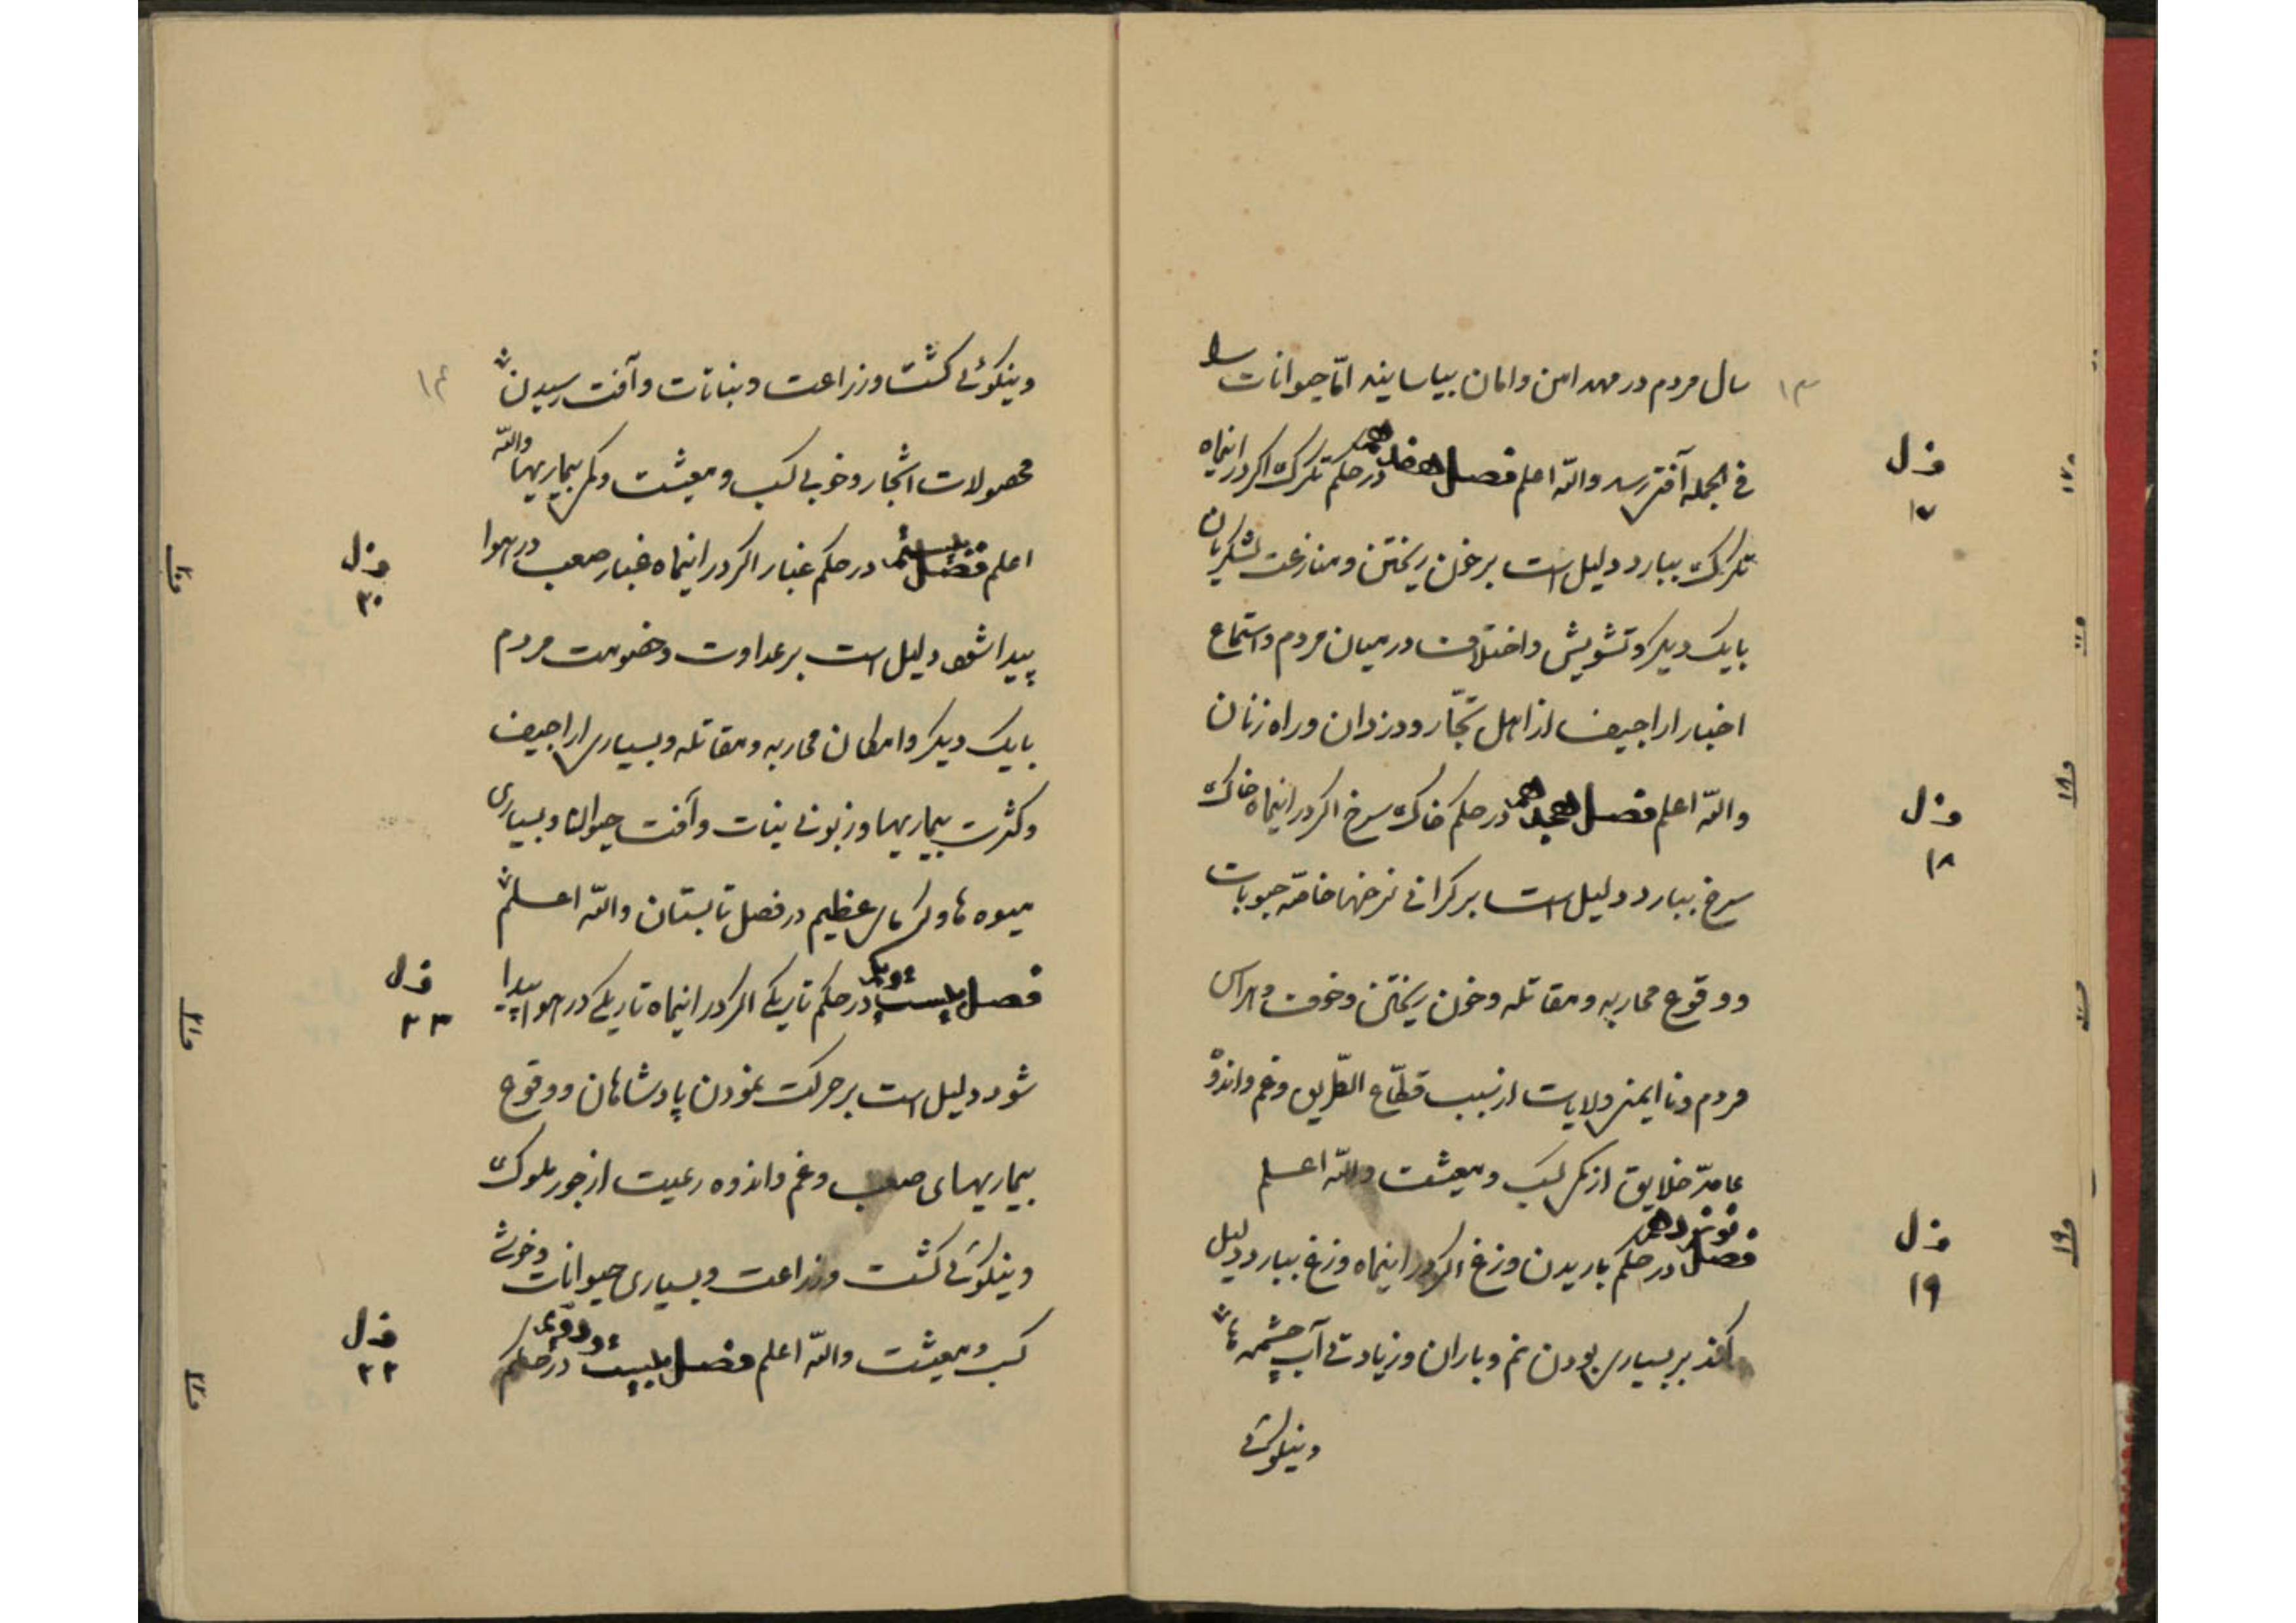 ۱۳
سال مردم در مهد امن و امان بیاسایند امّا حیوانات را
فی الجمله آفتی رسد واللّه اعلم فصل هفدهم در حکم تکرک اکر در اینماه
تکرک ببارد دلیل است بر خون ریختن و منازعت لشکریان
بایک دیکر و تشویش و اختلاف در میان مردم و استماع
اخبار اراجیف از اهل تجّار و دزدان و راه زنان
واللّه اعلم فصل هجدهم در حکم خاک سرخ اکر در اینماه خاک
سرخ ببارد دلیل است بر کرانی نرخها خاصّه حبوبات
و وقوع محاربه و مقاتله و خون ریختن و خوف و هراس
مردم و نا ایمنی ولایات از سبب قطّاع الطّریق و غم و اندوه
عامهٔ خلایق از کمی کسب و معیشت واللّه اعلم
فصل نوزدهم در حکم باریدن وزغ اکر در اینماه وزغ ببارد دلیل
کند بر بسیاری بودن نم و باران و زیادتی آب چشمه‌ها
و نیکوئی
ف ل
۱۷
ف ل
۱۸
ف ل
۱۹
۱۴
و نیکوئی کشت و زراعت و نباتات و آفت رسیدن
محصولات اشجار و خوبی کسب و معیشت و کمی بیماریها واللّه
اعلم فصل بیستم در حکم غبار اکر در اینماه غبار صعب در هوا
پیدا شود دلیل است بر عداوت و خصومت مردم
بایک دیکر و امکان محاربه و مقاتله و بسیاری اراجیف
و کثرت بیماریها و زبونی نبات و آفت حیوانات و بسیاری
میوه ها و کرمای عظیم در فصل تابستان واللّه اعلم
فصل بیست و یکم در حکم تاریکی اکر در اینماه تاریکی در هوا پیدا
شود دلیل است بر حرکت نمودن پادشاهان و وقوع
بیماریهای صعب و غم و اندوه رعیت از جور ملوک
و نیکوئی کشت و زراعت و بسیاری حیوانات و خوشی
کسب و معیشت واللّه اعلم فصل بیست و دوم در حکم
ف ل
۲۰
ف ل
ف ل
۲۲